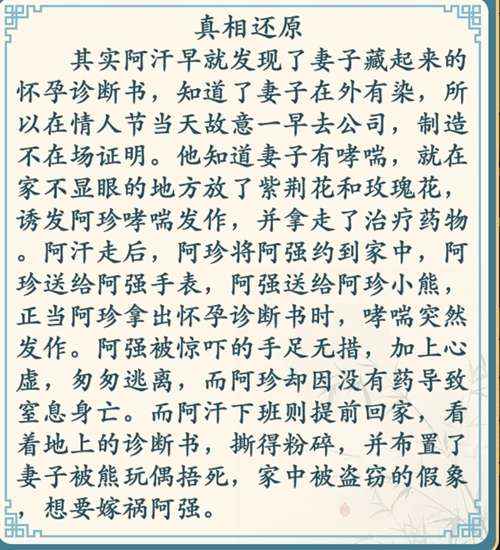 真相还原
其实阿汗早就发现了妻子藏起来的
怀孕诊断书，知道了妻子在外有染，所
以在情人节当天故意一早去公司，制造
不在场证明。他知道妻子有哮喘，就在
家不显眼的地方放了紫荆花和玫瑰花，
诱发阿珍哮喘发作，并拿走了治疗药物
。阿汗走后，阿珍将阿强约到家中，阿
珍送给阿强手表，阿强送给阿珍小熊，
正当阿珍拿出怀孕诊断书时，哮喘突然
发作。阿强被惊吓的手足无措，加上心
虚，匆匆逃离，而阿珍却因没有药导致
窒息身亡。而阿汗下班则提前回家，看
着地上的诊断书，撕得粉碎，并布置了
妻子被熊玩偶捂死，家中被盗窃的假象
，想要嫁祸阿强。